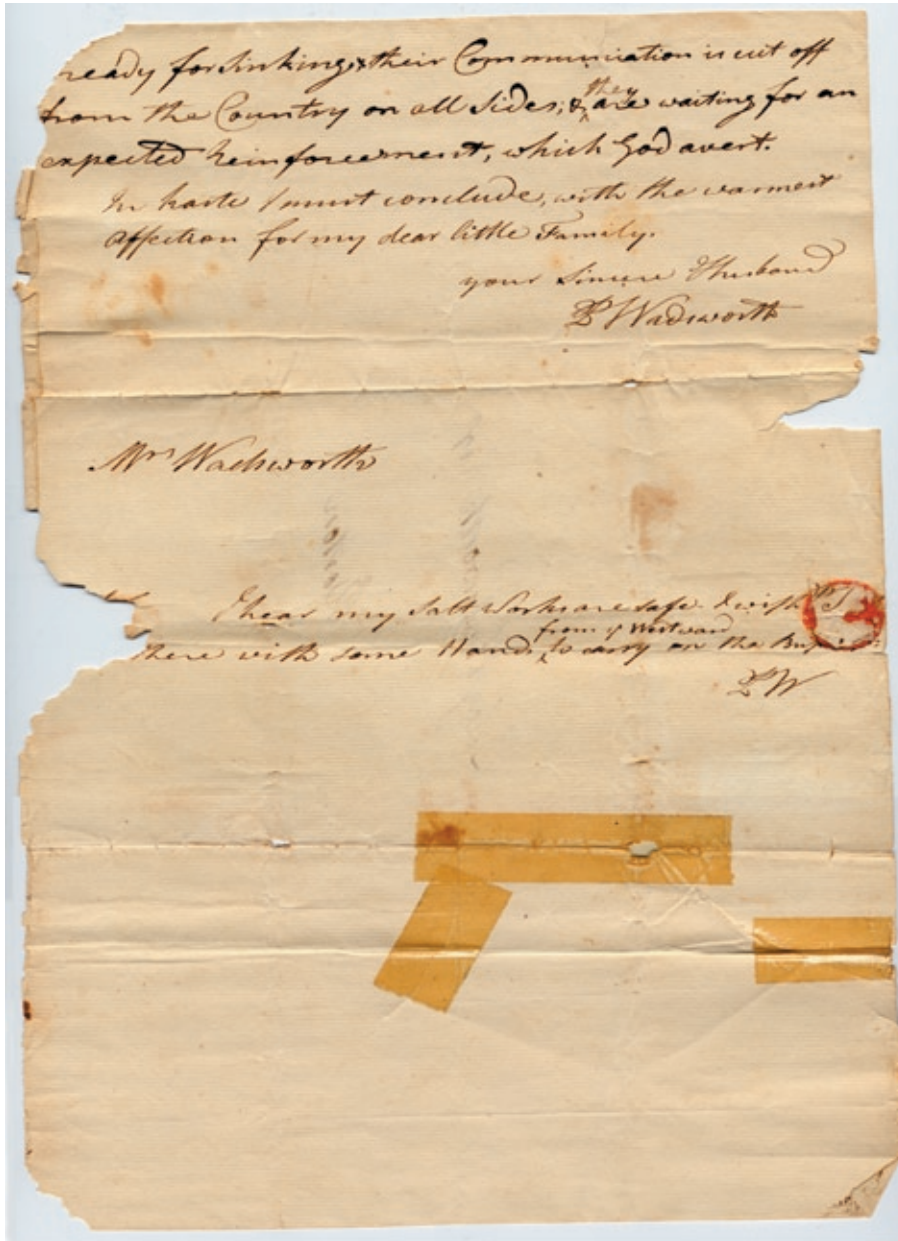 ready for sinking, & their Communication is cut off
from the Country on all sides; & they are waiting for an
expected Reinforcement, which God avert.
In haste I must conclude, with the warmest
Affection for my dear little Family.
your Sincere Husband
P Wadsworth
Mrs Wadsworth
I hear my Salt Works are safe. I wish
from ye Westward
there with some Hands to carry on the
PW